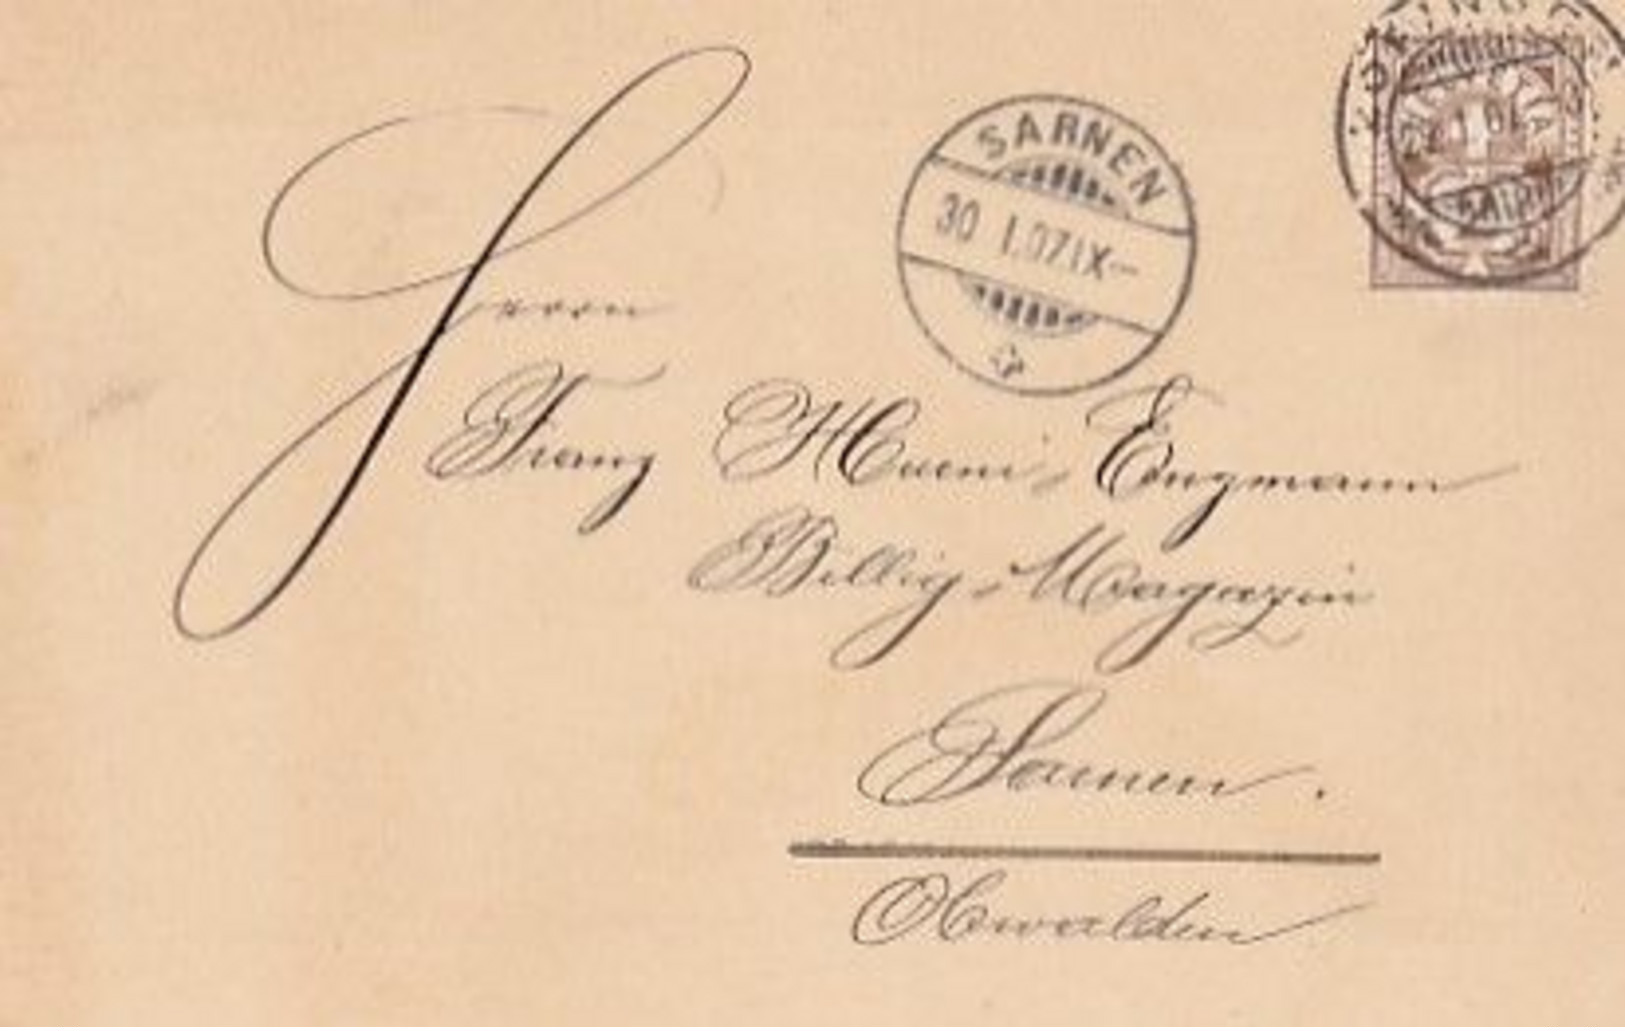 SARNEN
30 I.07 IX—
Herrn
Franz Hueni-Engmann
Billig-Magazin
Sarnen.
Obwalden